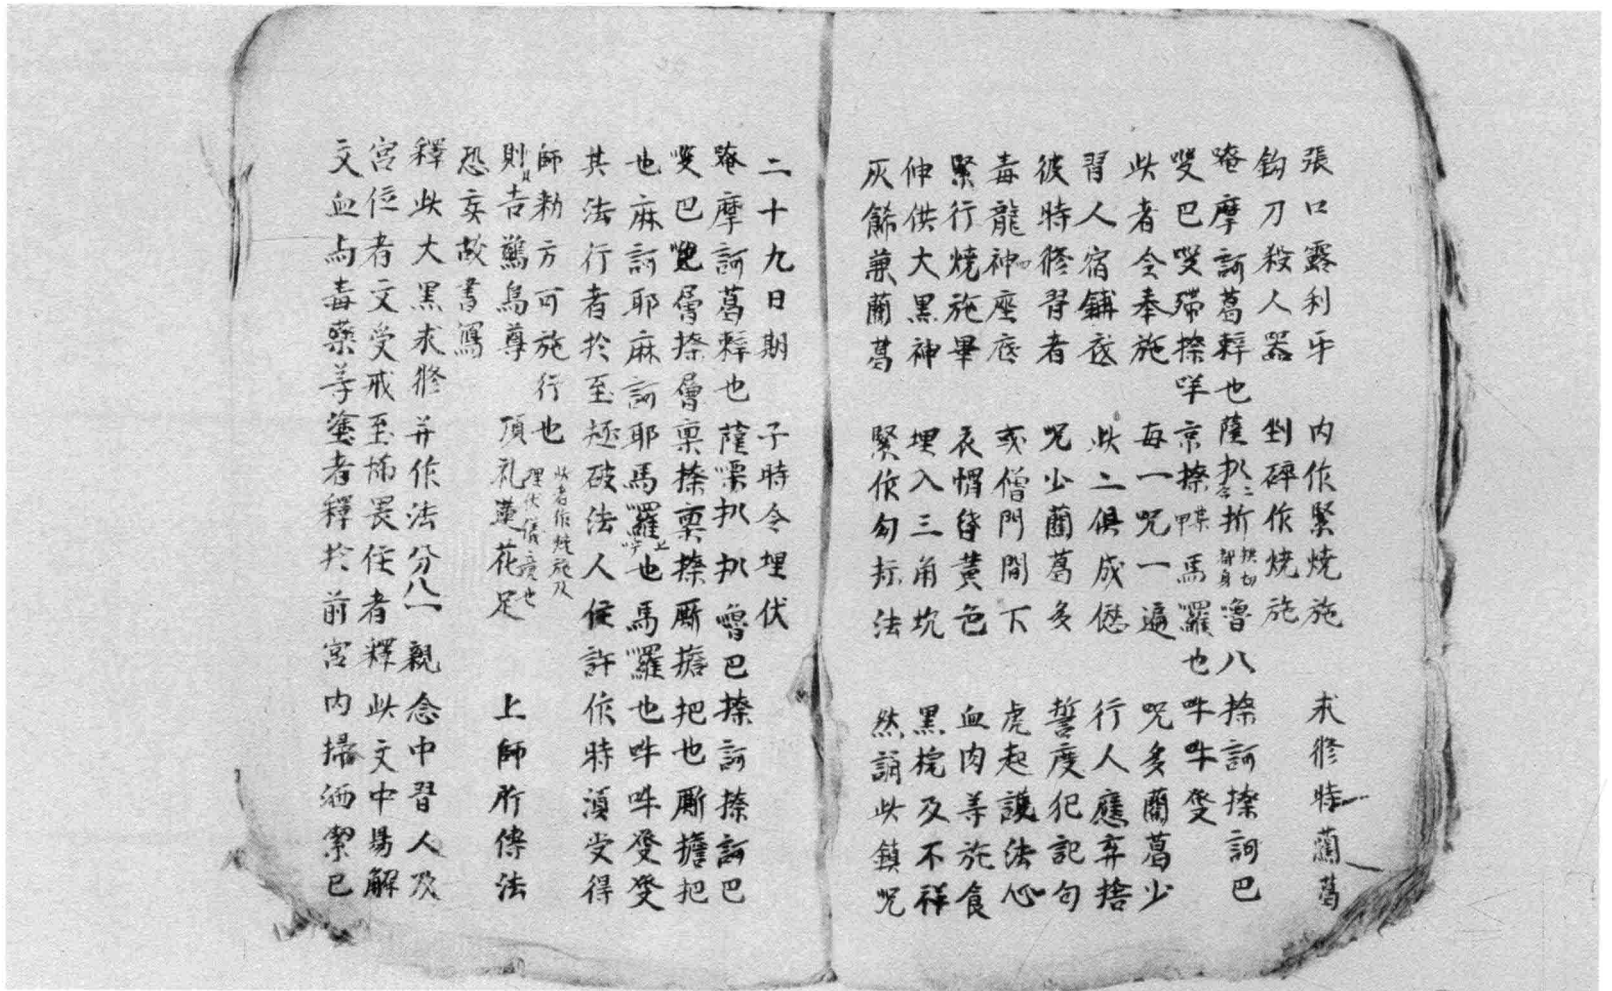 張口露利牙　内作緊燒施　求修時蘭葛
鈎刀殺人器　剉碎作燒施
唵摩訶葛辢也薩扒二合折挾切部身嚕八捺訶捺訶巴
㗚巴㗚殢捺咩京捺馬羅也吽吽癹
此者令奉施　每一呪一遍　呪多蘭葛少
習人宿鋪底　此二俱成愆　行人應弃捨
彼時修習者　呪少蘭葛多　誓度犯記句
毒龍神座底　或僧門閫下　虎起護法心
緊行燒施畢　衣㡌皆黃色　血肉等施食
伸供大黑神　埋入三角坎　黑椀及不祥
灰餙兼蘭葛　緊作勾抧法　然誦此鎮呪
二十九日期　子時令埋伏
唵摩訶葛辢也薩㗚扒扒嚕巴捺訶捺訶巴
㗚巴㘑層捺層稟捺稟捺厮擔把也厮擔把
也麻訶耶麻訶耶馬囉也馬囉也吽吽癹癹
其法行者於至極破法人住許作時湏受得
師勑方可施行也此者作燒施及埋伏儀度也
則吉驚為尊　頂礼蓮花足　上師所傳法
恐妄故書寫
釋此大黑求修并作法分八一親念中習人及
宮位者文受戒至怖畏住者釋此文中昜解
文血与毒藥等塗者釋於前宮内掃洒潔已